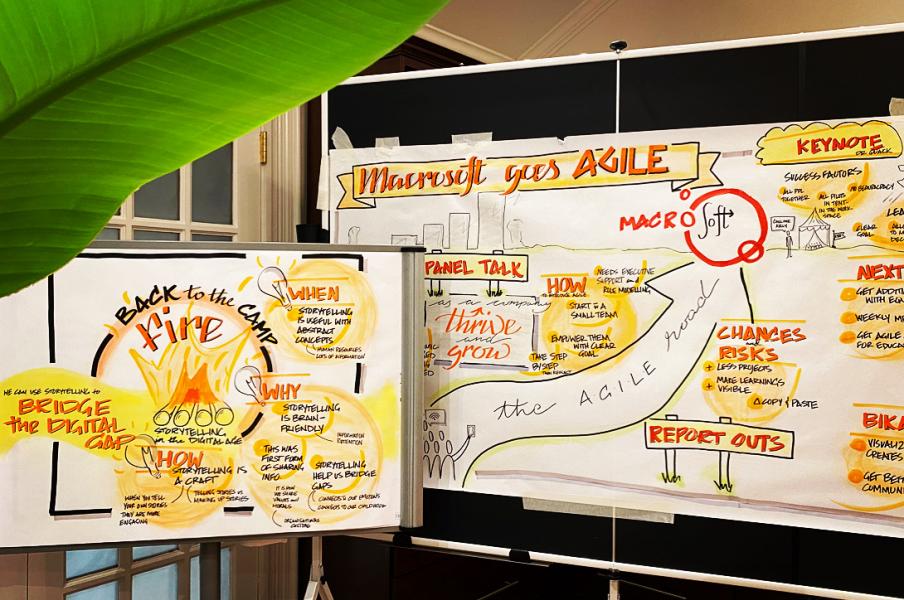 BACK to the CAMP
Fire
STORYTELLING
in the DIGITAL AGE
WE CAN USE STORYTELLING to
BRIDGE
the DIGITAL
GAP
HOW
STORYTELLING IS
A CRAFT
WHEN YOU TELL
YOUR OWN STORIES
THEY ARE MORE
ENGAGING
TELLING STORIES VS
MAKING UP STORIES
WHEN
STORYTELLING
IS USEFUL WITH
ABSTRACT
CONCEPTS
HUMAN RESOURCES
LOTS OF INFORMATION
WHY
STORYTELLING
IS BRAIN-
FRIENDLY
INFORMATION
RETENTION
THIS WAS
FIRST FORM
OF SHARING
INFO
IT IS HOW
WE SHARE
VALUES and
MORALS
STORYTELLING
HELP US BRIDGE
GAPS
CONNECTS to OUR EMOTIONS
CONNECTS to OUR CHILDHOOD
ORGANISATIONAL
Macrosoft goes AGILE
MACRO
Soft
PANEL TALK
as a company
thrive
and
grow
HOW
TO INTRODUCE AGILE
NEEDS EXECUTIVE
SUPPORT and
ROLE MODELLING
START in a
SMALL TEAM
EMPOWER THEM
WITH CLEAR
GOAL
TAKE STEP
BY STEP
THEN REFLECT
the AGILE road
CHANCES
RISKS
+ LESS PROJECTS
+ MAKE LEARNINGS
VISIBLE
△ COPY & PASTE
REPORT OUTS
KEYNOTE
DR. QUACK
SUCCESS FACTORS
ALL PPL
TOGETHER
ALL PILOTS
IN TENT-
IN THE WORK-
SPACE
NO BUREAUCRACY
CLEAR
GOAL
NEXT
GET ADDITI
WITH EQ
WEEKLY M
GET AGILE
FOR EDUCA
BIKA
VISUALIZ
CREATES
GET BET
COMMUN